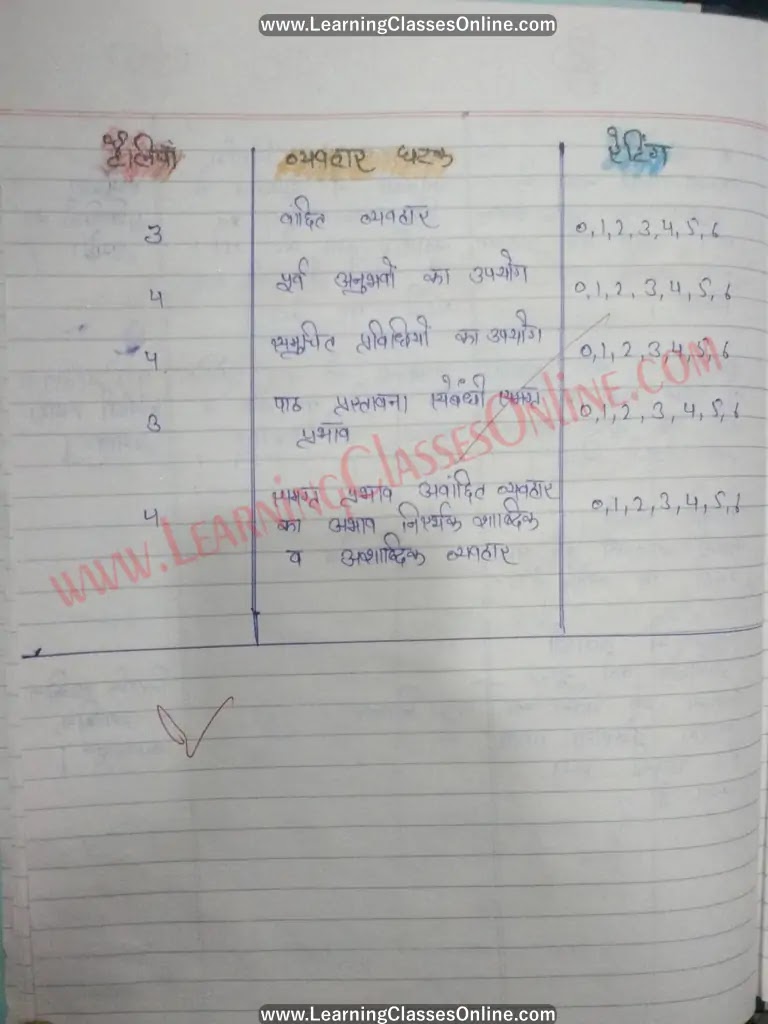 www.LearningClassesOnline.com
टैलियाँ व्यवहार घटक रेटिंग
3 वांछित व्यवहार 0,1,2,3,4,5,6
4 पूर्व अनुभवों का उपयोग 0,1,2,3,4,5,6
4 समुचित प्रविधियों का उपयोग 0,1,2,3,4,5,6
3 पाठ प्रस्तावना संबंधी समग्र 0,1,2,3,4,5,6
प्रभाव
4 समग्र प्रभाव अवांछित व्यवहार 0,1,2,3,4,5,6
का अभाव निरर्थक शाब्दिक
व अशाब्दिक व्यवहार
www.LearningClassesOnline.com
www.LearningClassesOnline.com